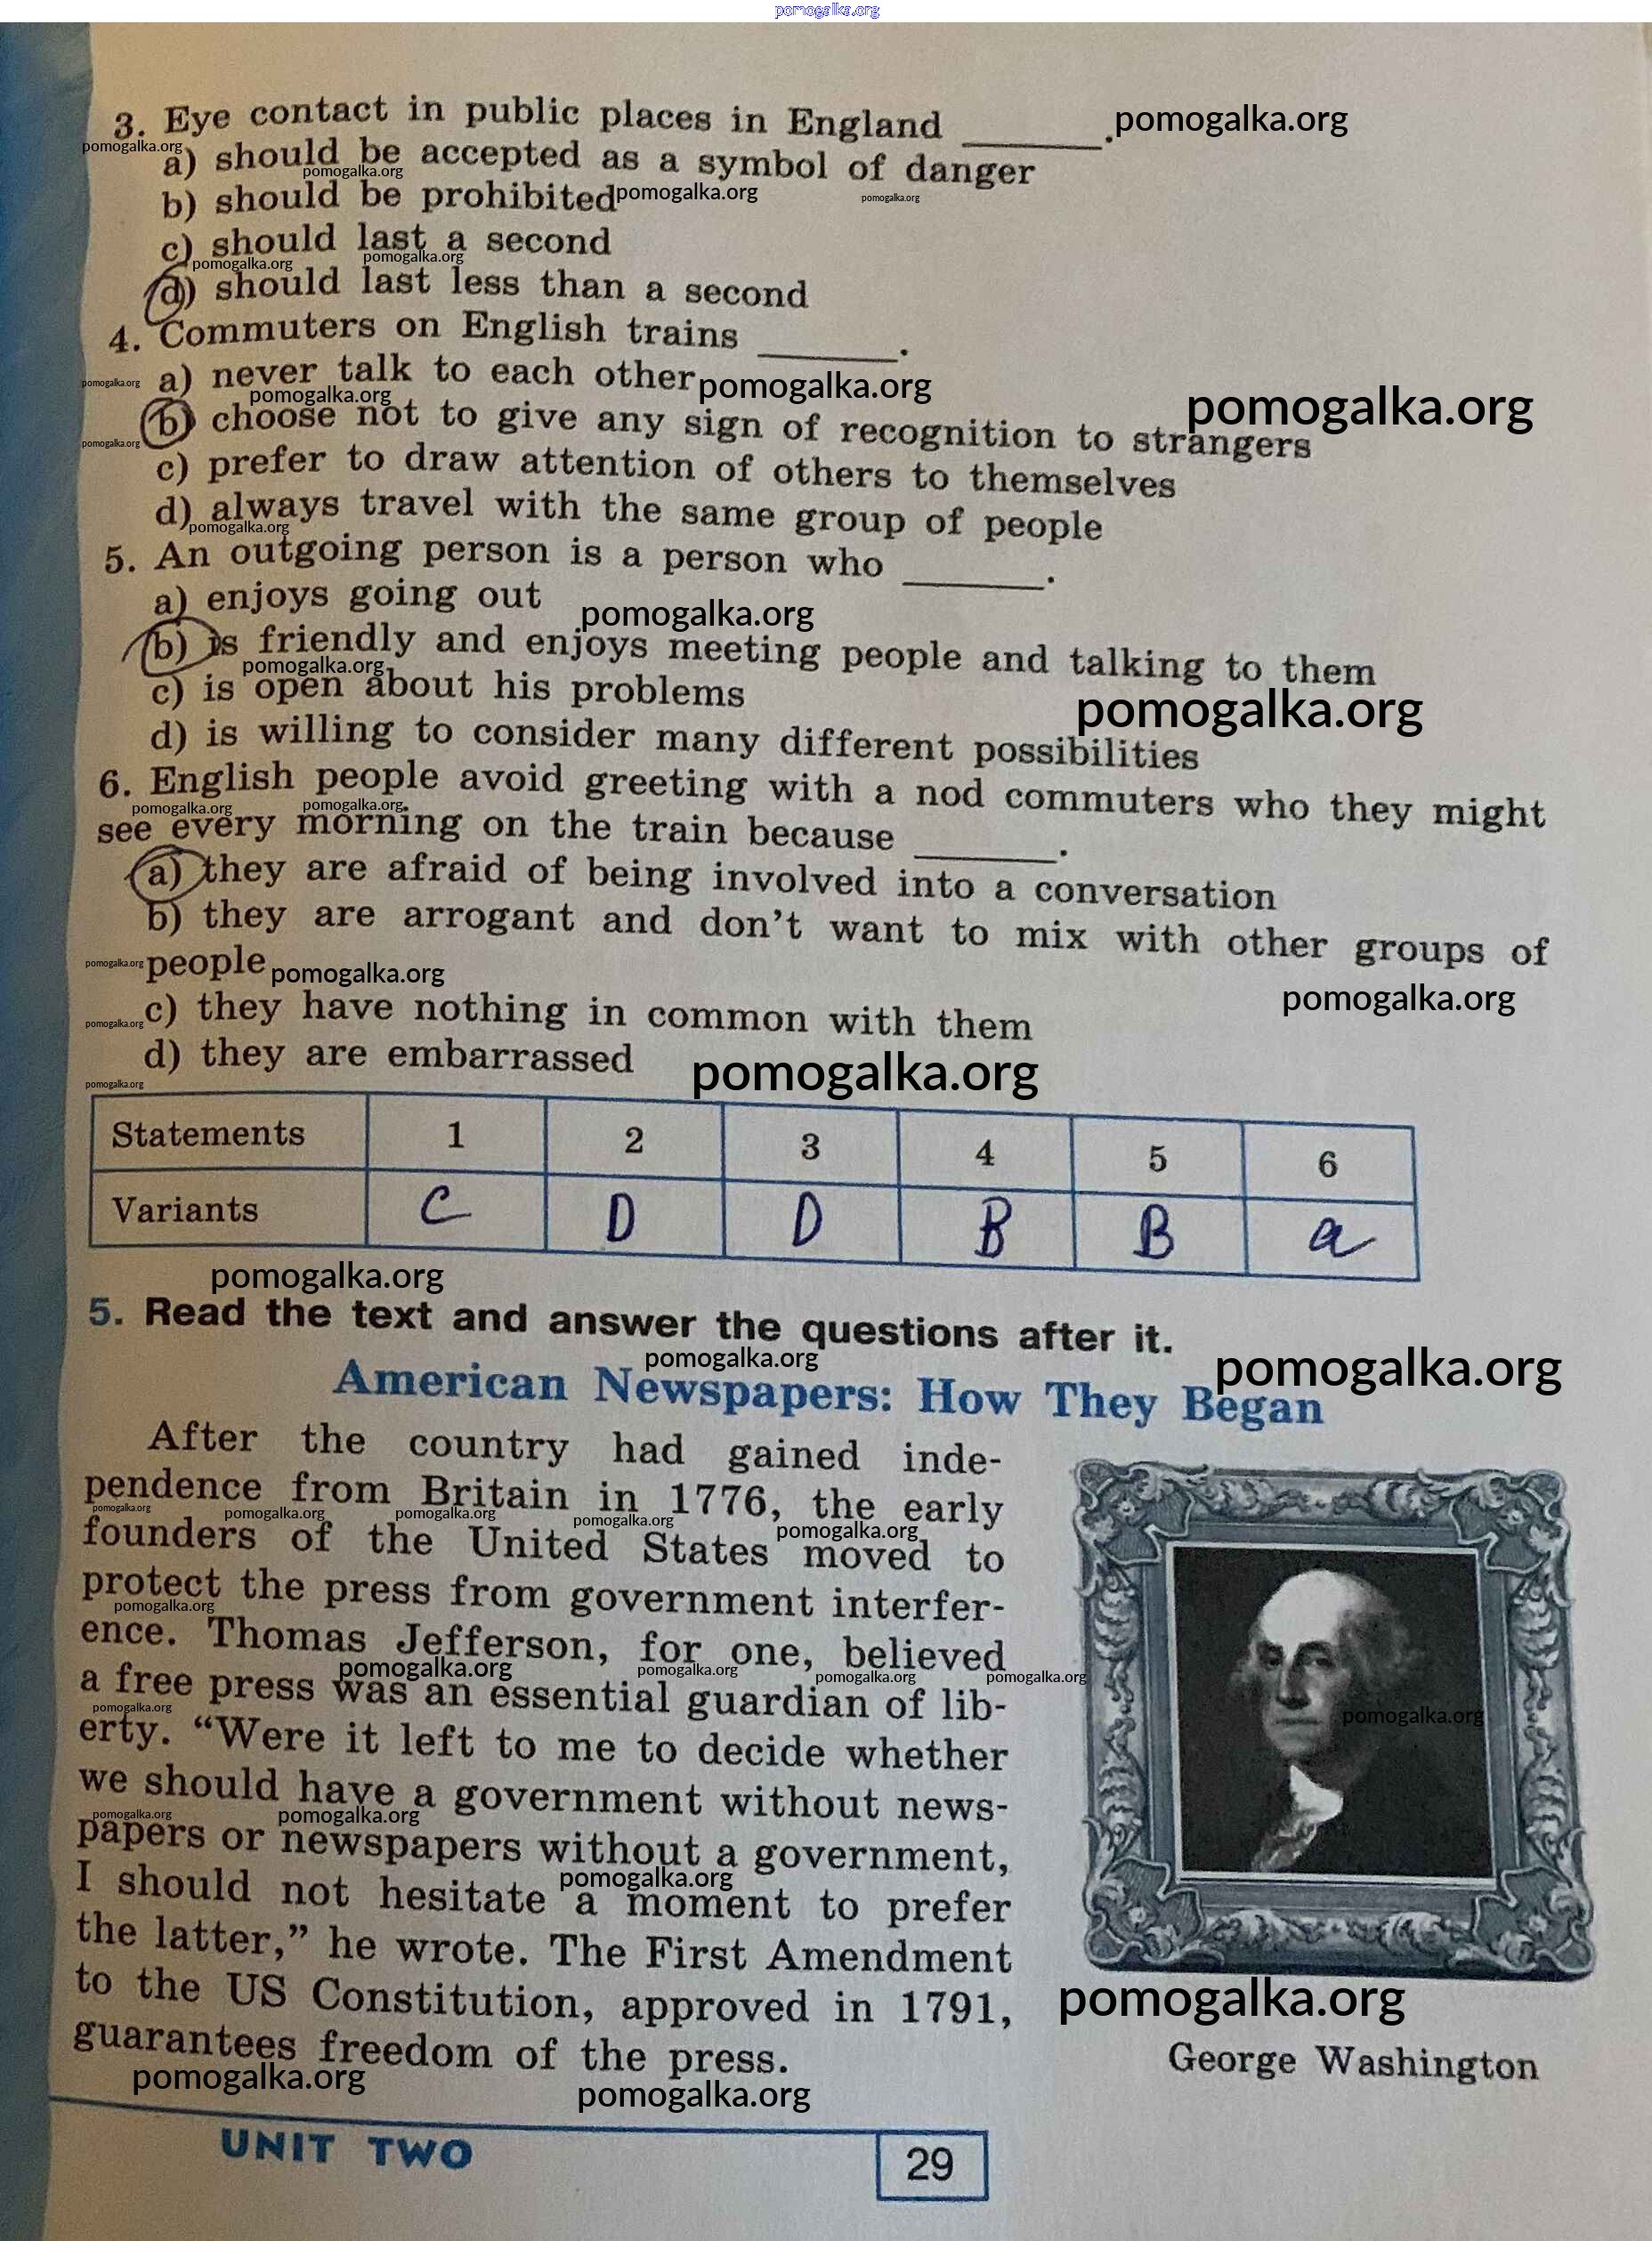 pomogalka.org
3. Eye contact in public places in England ______. pomogalka.org
pomogalka.org
a) should be accepted as a symbol of danger
pomogalka.org
b) should be prohibited pomogalka.org pomogalka.org
c) should last a second
pomogalka.org pomogalka.org
d) should last less than a second
4. Commuters on English trains ______.
pomogalka.org a) never talk to each other pomogalka.org
pomogalka.org pomogalka.org
b) choose not to give any sign of recognition to strangers
pomogalka.org
c) prefer to draw attention of others to themselves
d) always travel with the same group of people
pomogalka.org
5. An outgoing person is a person who ______.
a) enjoys going out pomogalka.org
b) is friendly and enjoys meeting people and talking to them
pomogalka.org
c) is open about his problems
pomogalka.org
d) is willing to consider many different possibilities
6. English people avoid greeting with a nod commuters who they might
pomogalka.org pomogalka.org
see every morning on the train because ______.
a) they are afraid of being involved into a conversation
b) they are arrogant and don't want to mix with other groups of
pomogalka.org people pomogalka.org
pomogalka.org
pomogalka.org c) they have nothing in common with them
d) they are embarrassed pomogalka.org
pomogalka.org
Statements 1 2 3 4 5 6
Variants C D D B B a
pomogalka.org
5. Read the text and answer the questions after it.
pomogalka.org pomogalka.org
American Newspapers: How They Began
After the country had gained inde-
pendence from Britain in 1776, the early
pomogalka.org pomogalka.org pomogalka.org pomogalka.org pomogalka.org
founders of the United States moved to
protect the press from government interfer-
pomogalka.org
ence. Thomas Jefferson, for one, believed
pomogalka.org pomogalka.org pomogalka.org pomogalka.org
a free press was an essential guardian of lib-
pomogalka.org pomogalka.org
erty. "Were it left to me to decide whether
we should have a government without news-
pomogalka.org pomogalka.org
papers or newspapers without a government,
pomogalka.org
I should not hesitate a moment to prefer
the latter," he wrote. The First Amendment
to the US Constitution, approved in 1791,
pomogalka.org
guarantees freedom of the press.
George Washington
pomogalka.org pomogalka.org
UNIT TWO 29